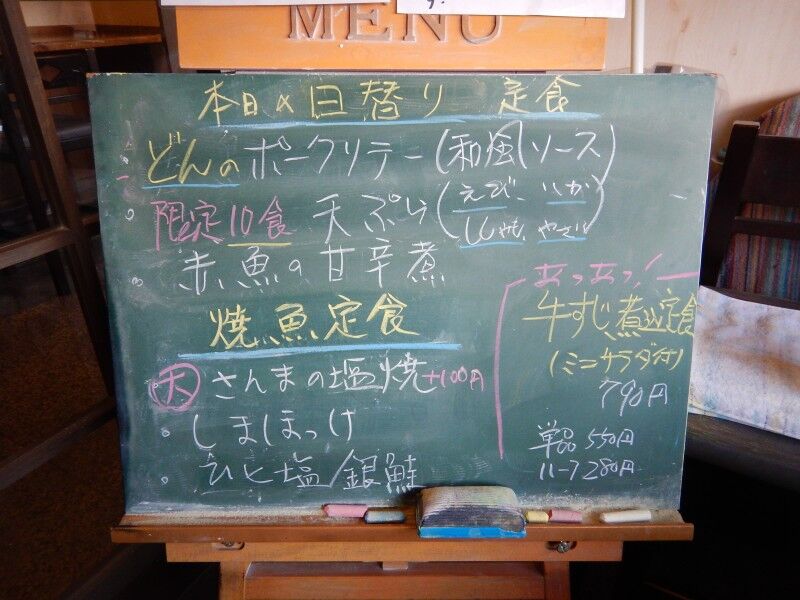 MENU
本日の日替り 定食
どんのポークソテー(和風ソース)
限定10食 天ぷら(えび、いか
しし唐、やさい)
赤魚の甘辛煮
焼魚定食
大 さんまの塩焼+100円
しまほっけ
ひと塩銀鮭
あつあつ!
牛すじ煮込定食
(ミニサラダ付)
790円
単品 550円
ハーフ 280円